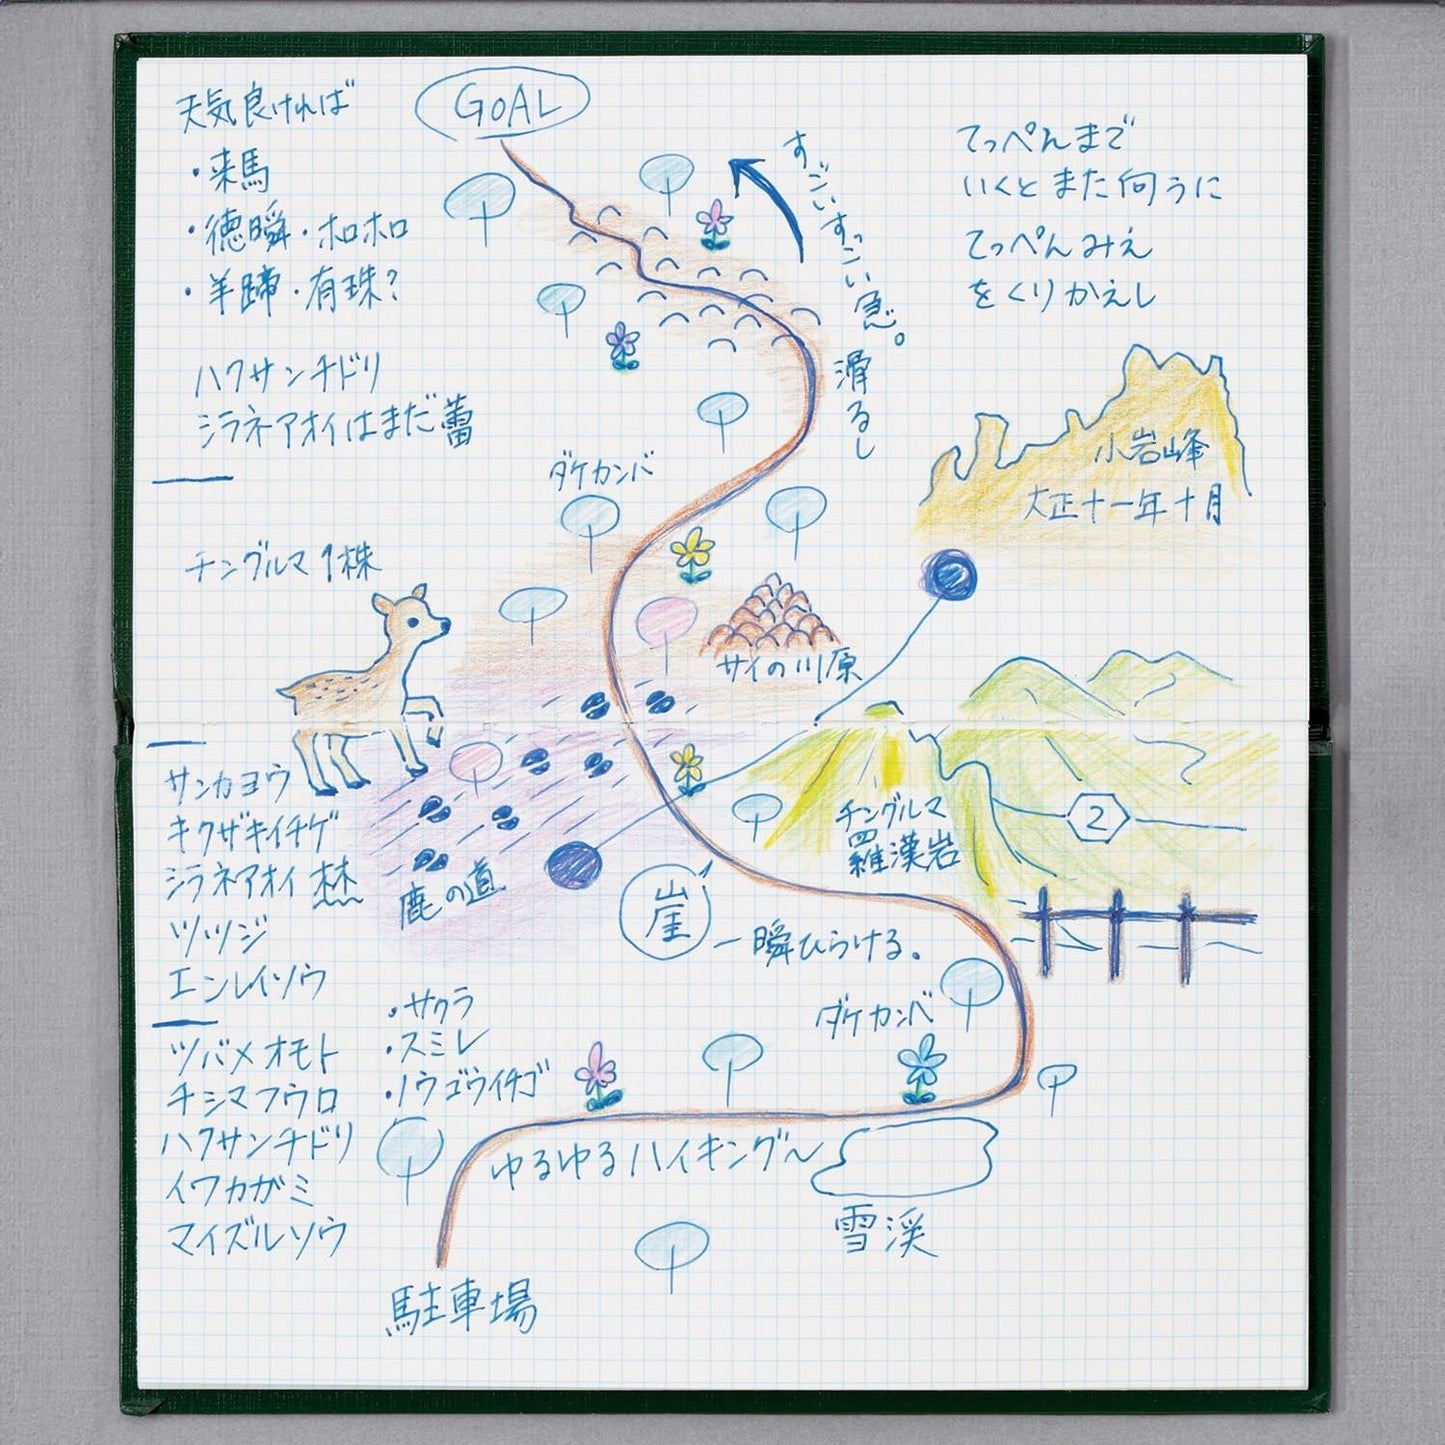 GOAL
天気良ければ
・来馬
・徳瞬・ホロホロ
・羊蹄・有珠?
ハクサンチドリ
シラネアオイはまだ蕾
すごいすっごい急。
滑るし
てっぺんまで
いくとまた向うに
てっぺんみえ
をくりかえし
ダケカンバ
小岩峰
大正十一年十月
チングルマ1株
サイの川原
サンカヨウ
キクザキイチゲ
シラネアオイ
ツツジ
エンレイソウ
鹿の道
崖
一瞬ひらける。
チングルマ
羅漢岩
2
ダケカンバ
ツバメオモト
チシマフウロ
ハクサンチドリ
イワカガミ
マイズルソウ
・サクラ
・スミレ
・ノウゴウイチゴ
ゆるゆるハイキング〜
雪渓
駐車場